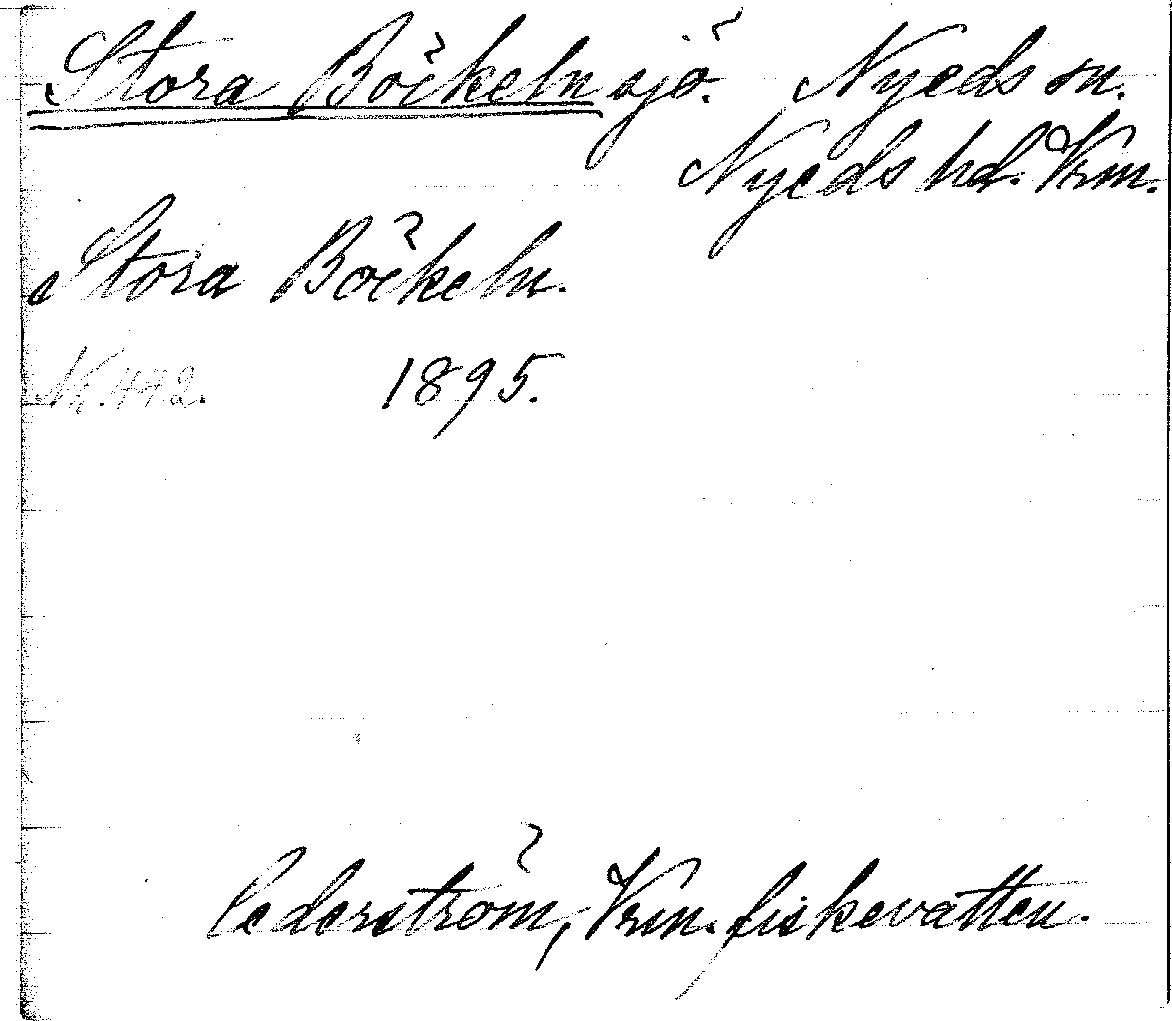 Stora Böckeln sjö. Nyeds sn.
Nyeds hd. Vrm.
Stora Böckeln.
Nr. 442. 1895.
Cederström, Vrm. fiskevatten.